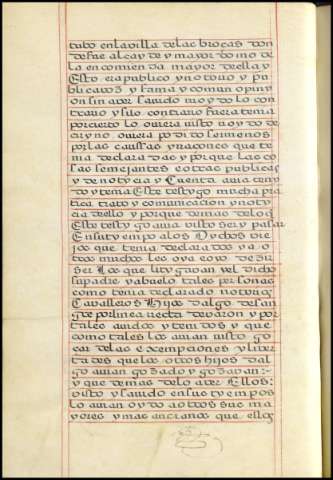 tubo en la villa de las brocas don
de fue alcayde y mayordomo de
la encomienda mayor de ella y
Esto era publico y notorio y pu
blica voz y fama y comun opiny
on sin aver savido ni oydo lo con
trario y si lo contrario fuera tenia
por cierto lo oviera visto u oydo de
cir y no oviera podido ser menos
por las caussas y raçones que te
nia declaradas y porque las co
sas semejantes e otras publicas
y de noticia y Cuenta avia teny
do y tenia Este testygo mucha pra
tica trato y comunicacion y noti
cia de ello y porque demas de lo q
Este testygo avia visto ser y pasar
En su tyempo a los Dychos vie
jos que tenia declarados y a o
tros muchos les oya eoyo dezir
ser Los que lityגavan y el dicho
su padre y abuelo tales personas
como tenia declarado notorios
Cavalleros Hijos dalgo de san
gre por linea recta de varon y por
tales avidos y tenidos y que
como tales los avian visto go
çar de las eçempciones y liber
tades que los otros hijos dal
go avian gozado y gozavan :~
y que demas de lo aver Ellos :
visto y savido en su tyempo ssi
lo avian oydo a otros sus ma
yores y mas ancianos que ellos